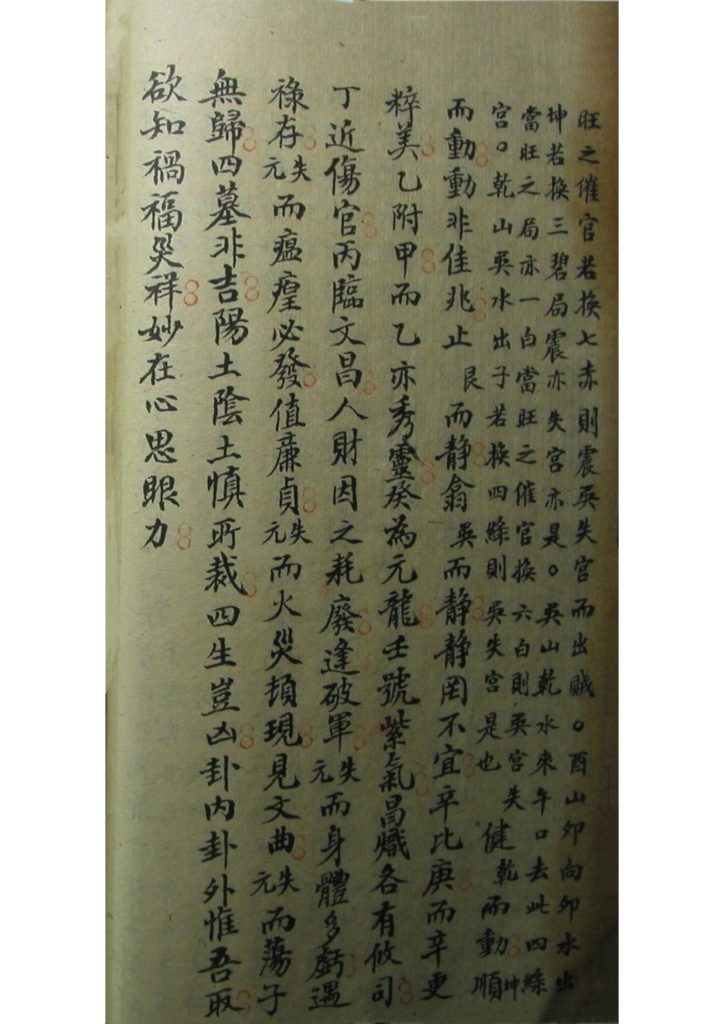 旺之催官若換七赤則震巽失宮而出賊。酉山卯向卯水出
坤若換三碧局震亦失宮亦是。巽山乾水來午口去此四綠
當旺之局亦一白當旺之催官換六白則巽宮失
宮。乾山巽水出子若換四綠則巽失宮是也 健乾而動順坤
而動動非佳兆止艮而静翕巽而静静罔不宜辛比庚而辛更
粹美乙附甲而乙亦秀靈癸為元龍壬號紫氣昌熾各有攸司
丁近傷官丙臨文昌人財因之耗廢逢破軍失元而身體多虧遇
祿存失元而瘟㾮必發值廉貞失元而火災頓現見文曲失元而蕩子
無歸四墓非吉陽土陰土慎所裁四生豈凶卦内卦外惟吾取
欲知禍福災祥妙在心思眼力